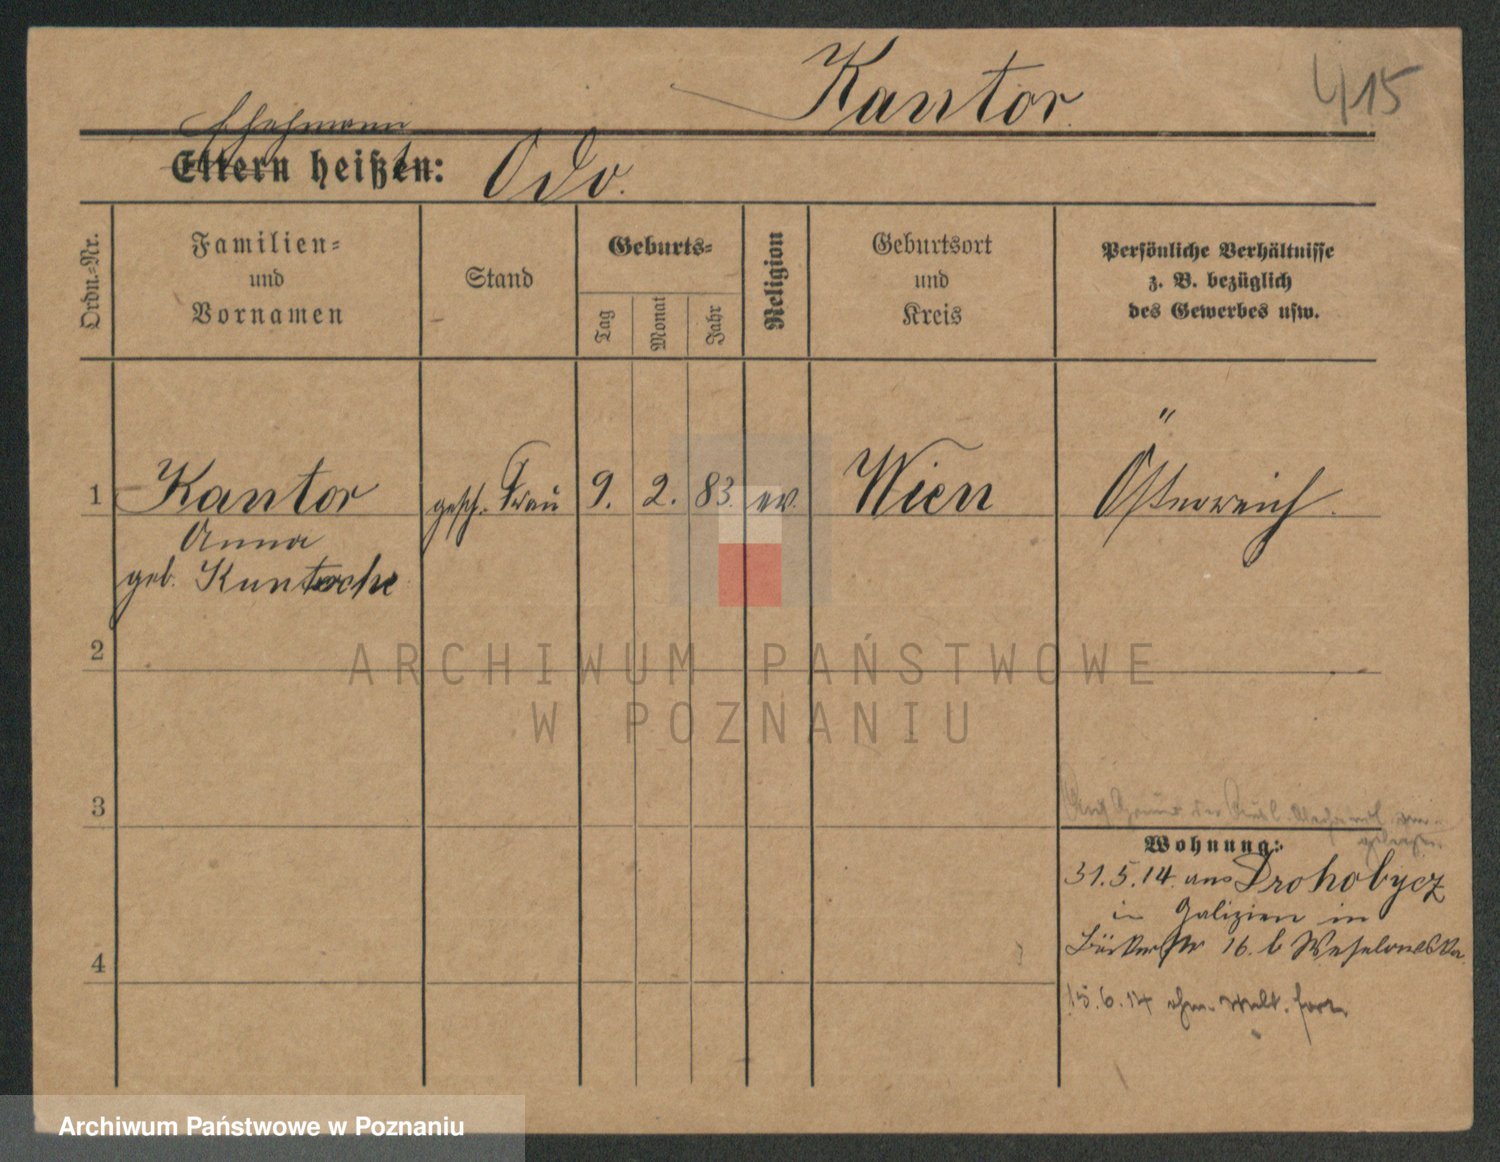 Kantor.
415
Ehehmann
Eltern heißen: Odo.
Ordn.=Nr.
Familien=
und
Vornamen
Stand
Geburts=
Tag
Monat
Jahr
Religion
Geburtsort
und
Kreis
Persönliche Verhältnisse
z. B. bezüglich
des Gewerbes usw.
1 Kantor gesch. Frau 9. 2. 83. ev. Wien Österreich.
Anna
geb.
2
3
4
Wohnung:
31.5.14. aus Drohobycz
in Galizien in
16. b
15.6.14 fort
ARCHIWUM PAŃSTWOWE
W POZNANIU
Archiwum Państwowe w Poznaniu